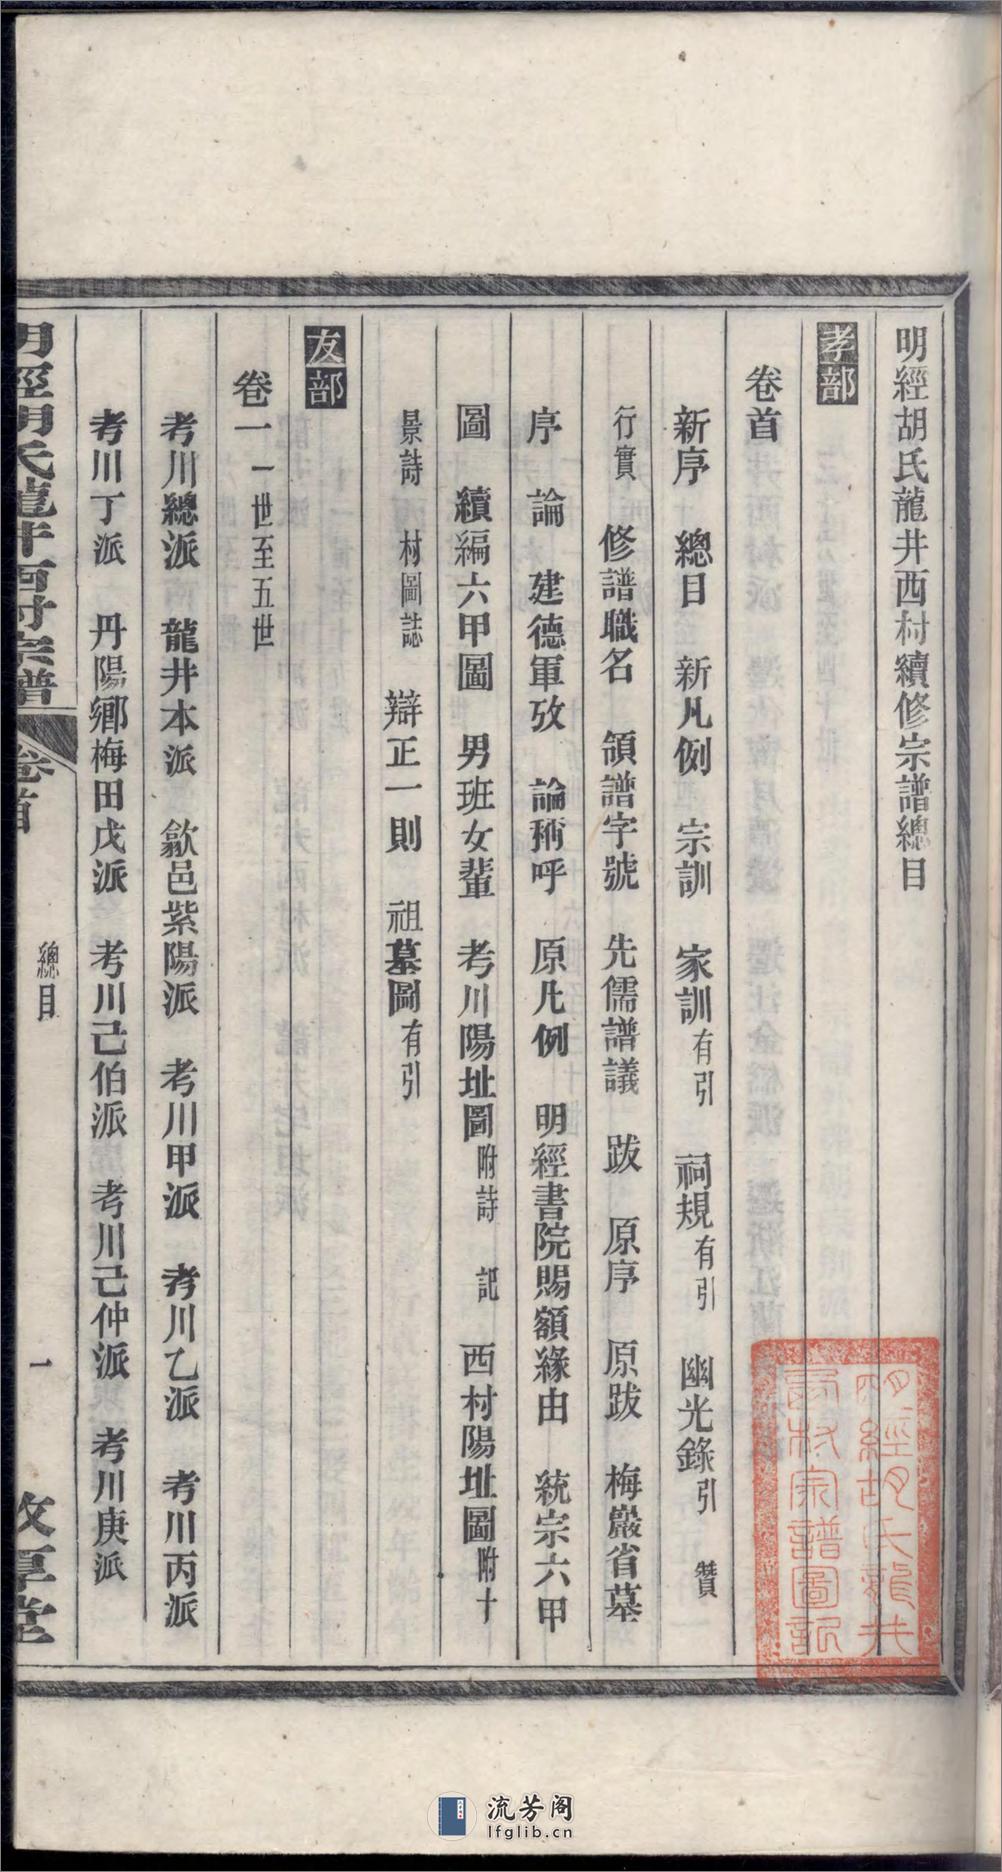 明經胡氏龍井西村續修宗譜總目
孝部
卷首
新序　總目　新凡例　宗訓　家訓有引　祠規有引　幽光錄引　贊
行實　修譜職名　領譜字號　先儒譜議　跋　原序　原跋　梅巖省墓
序　論　建德軍攷　論稱呼　原凡例　明經書院賜額緣由　統宗六甲
圖　續編六甲圖　男班女輩　考川陽址圖附詩　記　西村陽址圖附十
景詩　村圖誌　辯正一則　祖墓圖有引
友部
卷一一世至五世
考川總派　龍井本派　歙邑紫陽派　考川甲派　考川乙派　考川丙派
考川丁派　丹陽鄉梅田戊派　考川己伯派　考川己仲派　考川庚派
明經胡氏龍井西村宗譜　卷首　總目　一　敦厚堂
明經胡氏龍井
西村宗譜圖記
流芳阁
lfglib.cn